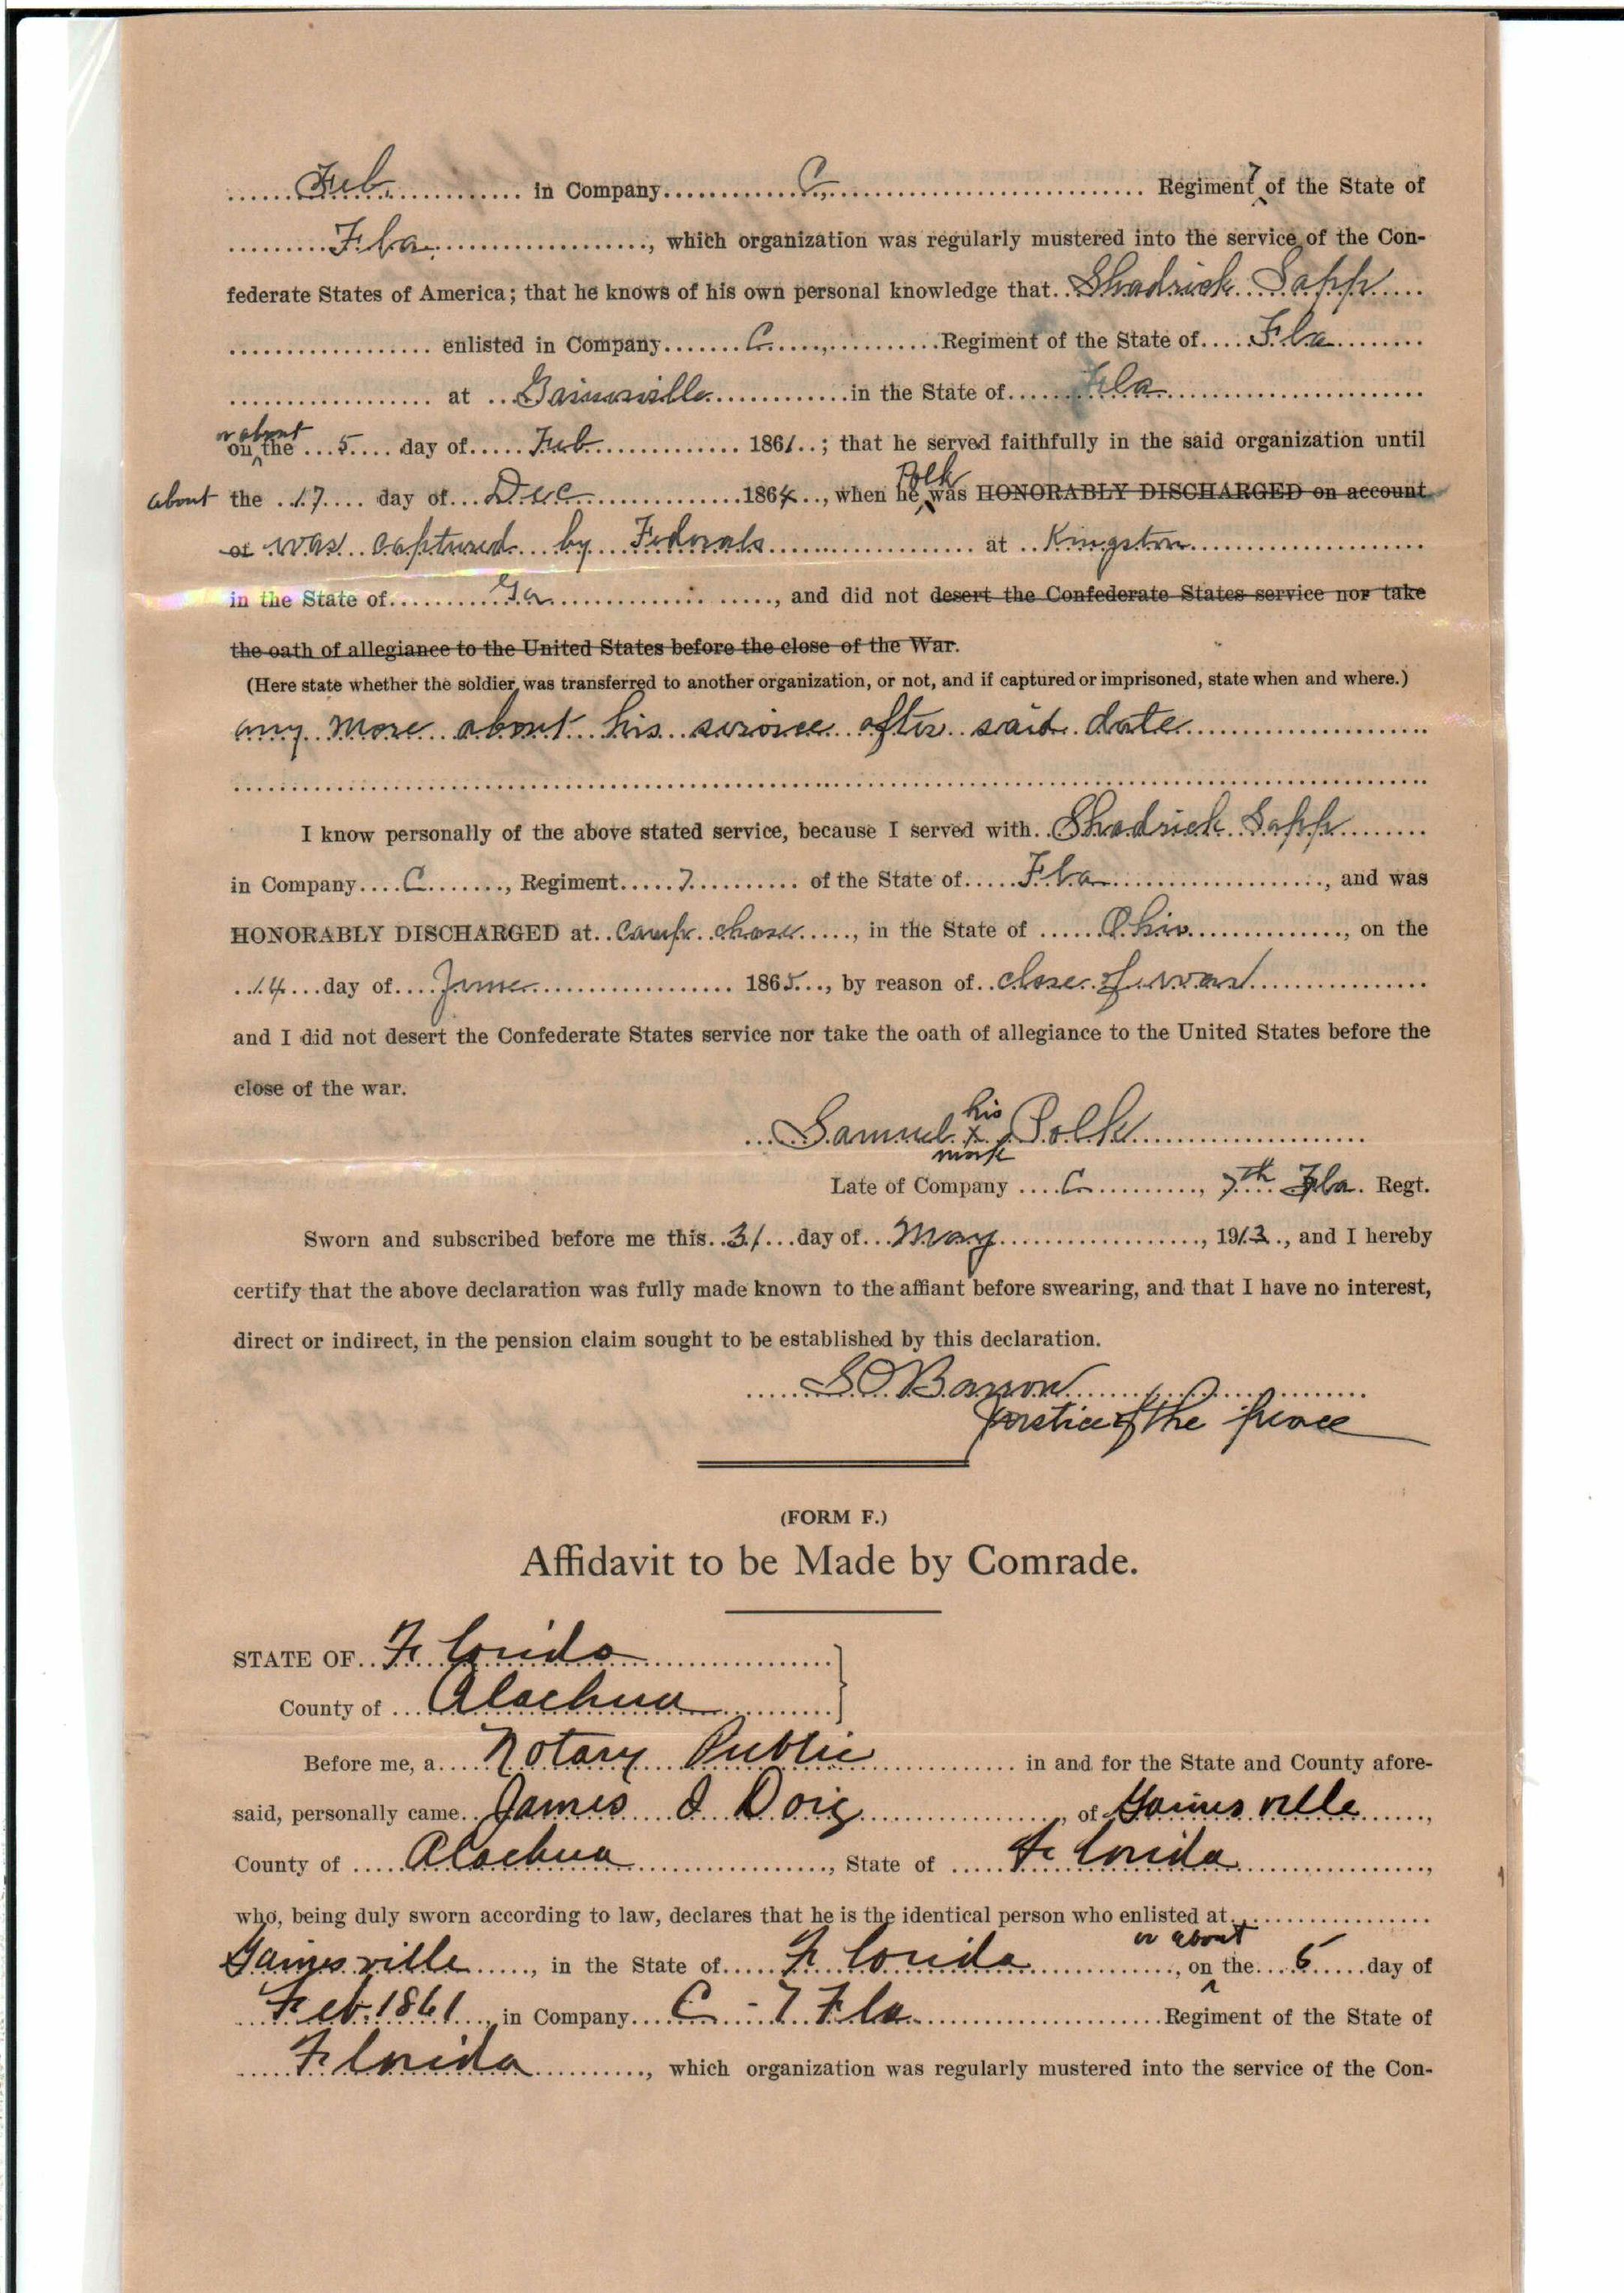 Feb. in Company C, Regiment 7 of the State of
Fla., which organization was regularly mustered into the service of the Con-
federate States of America; that he knows of his own personal knowledge that Shadrick Sapp
enlisted in Company C, Regiment of the State of Fla
at Gainesville in the State of Fla
or about
on the 5 day of Feb 1861; that he served faithfully in the said organization until
Polk
about the 17 day of Dec 1864, when he was HONORABLY DISCHARGED on account
of was captured by Federals at Kingston
in the State of Ga, and did not desert the Confederate States service nor take
the oath of allegiance to the United States before the close of the War.
(Here state whether the soldier was transferred to another organization, or not, and if captured or imprisoned, state when and where.)
any more about his service after said date
I know personally of the above stated service, because I served with Shadrick Sapp
in Company C, Regiment 7 of the State of Fla, and was
HONORABLY DISCHARGED at Camp chase, in the State of Ohio, on the
14 day of June 1865, by reason of close of war
and I did not desert the Confederate States service nor take the oath of allegiance to the United States before the
close of the war.
his
Samuel x Polk
mark
Late of Company C, 7th Fla. Regt.
Sworn and subscribed before me this 31 day of May, 1913, and I hereby
certify that the above declaration was fully made known to the affiant before swearing, and that I have no interest,
direct or indirect, in the pension claim sought to be established by this declaration.
S O Barron
Justice of the peace
(FORM F.)
Affidavit to be Made by Comrade.
STATE OF Florida
County of Alachua
Before me, a Notary Public in and for the State and County afore-
said, personally came James Doig, of Gainesville,
County of Alachua, State of Florida,
who, being duly sworn according to law, declares that he is the identical person who enlisted at
or about
Gainesville, in the State of Florida, on the 5 day of
Feb. 1861, in Company C - 7 Fla. Regiment of the State of
Florida, which organization was regularly mustered into the service of the Con-